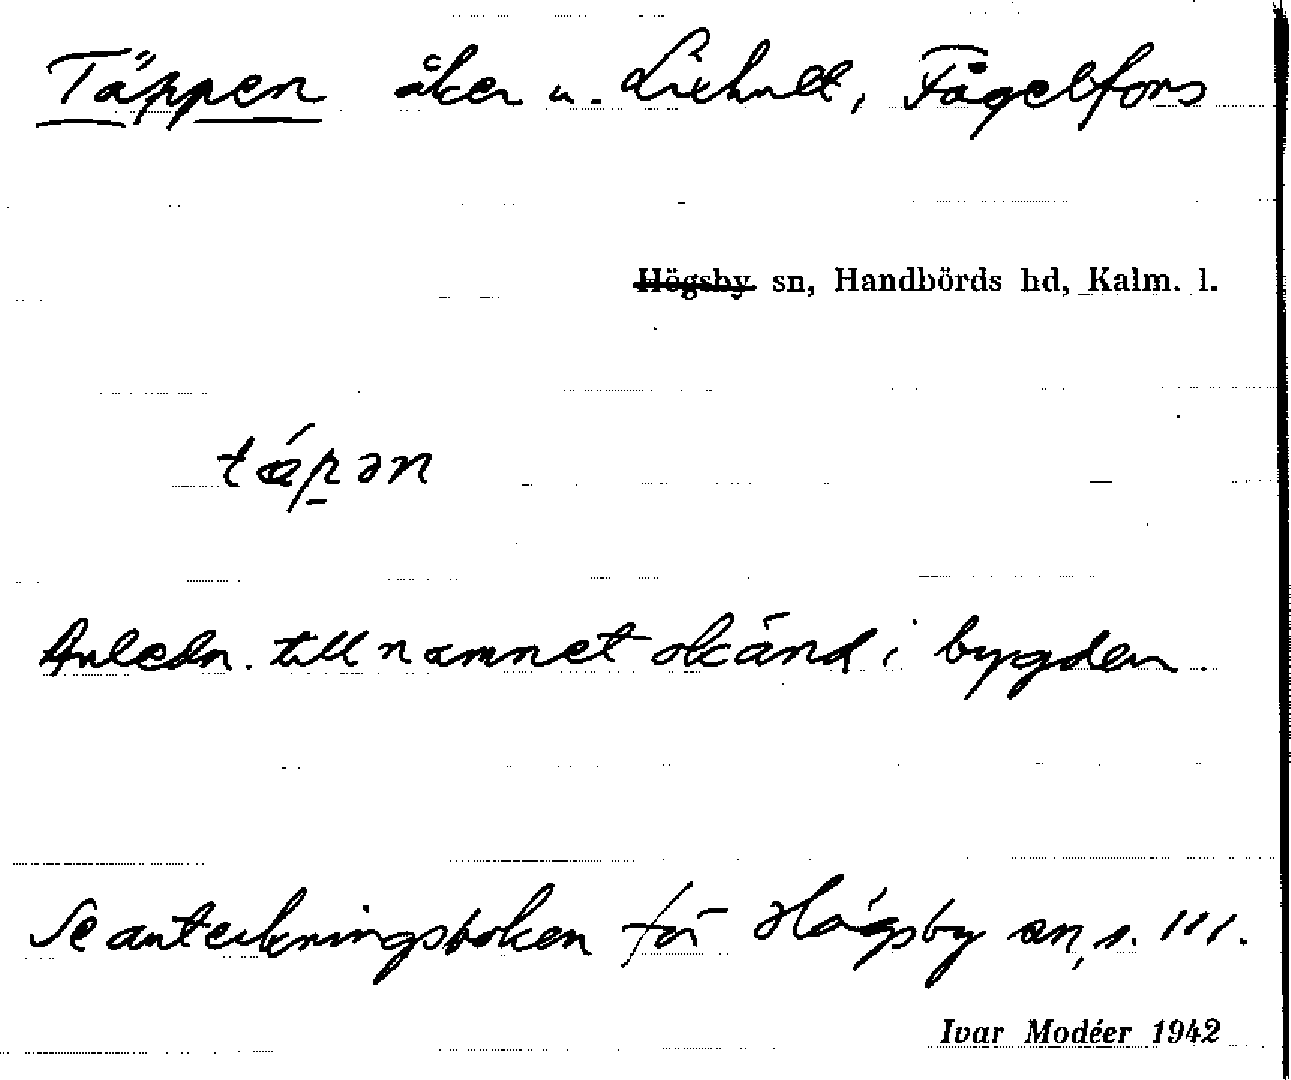 Täppen åker u. Lixhult, Fågelfors
Högsby sn, Handbörds hd, Kalm. l.
tǽp̱ən
Anledn. till namnet okänd i bygden.
Se anteckningsboken för Högsby sn, s. 111.
Ivar Modéer 1942